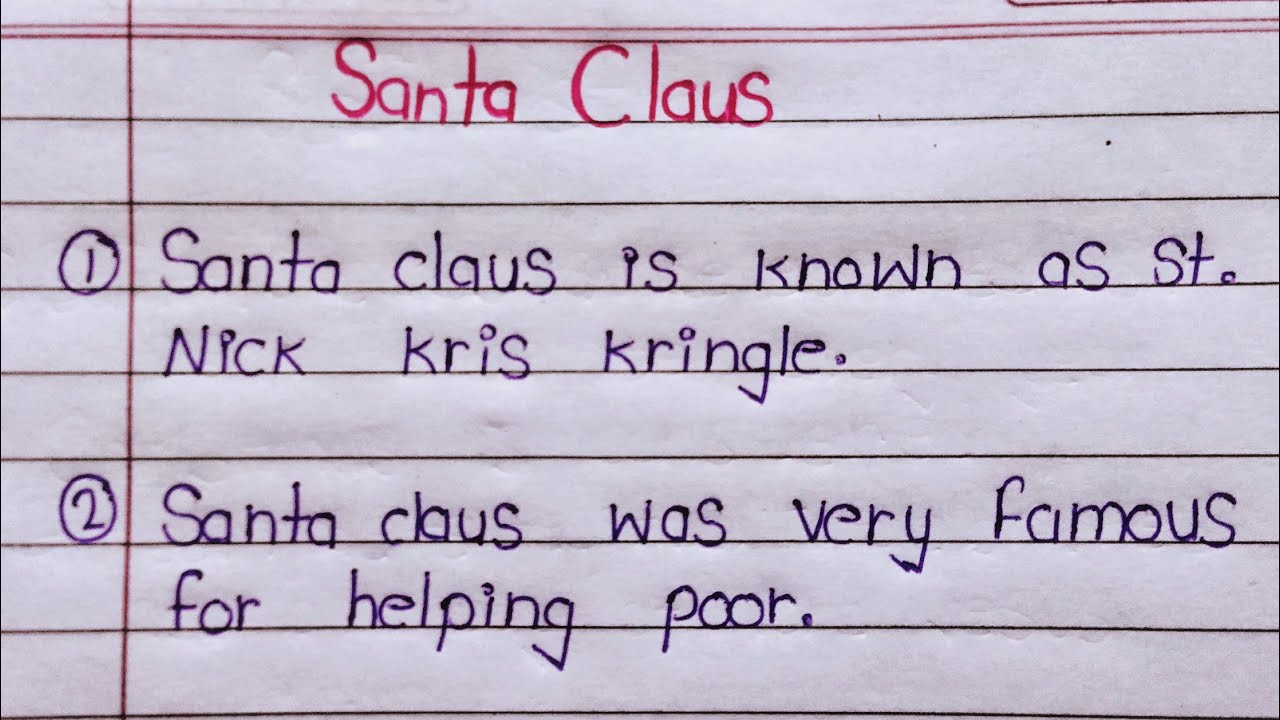 Santa Claus
① Santa claus is known as St.
Nick kris kringle.
② Santa claus was very famous
for helping poor.